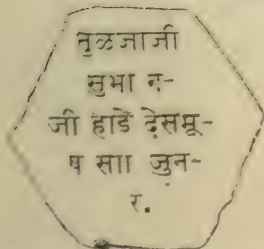 तुळजाजी
सुभा न-
जी हाडे देसमू-
ष साा जुन-
र.